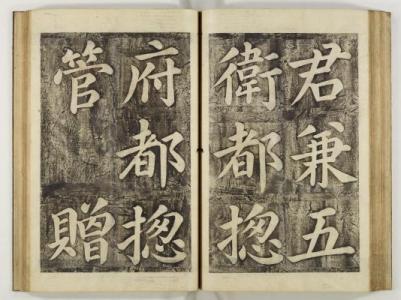 君兼五
衛都揔
府都揔
管 贈